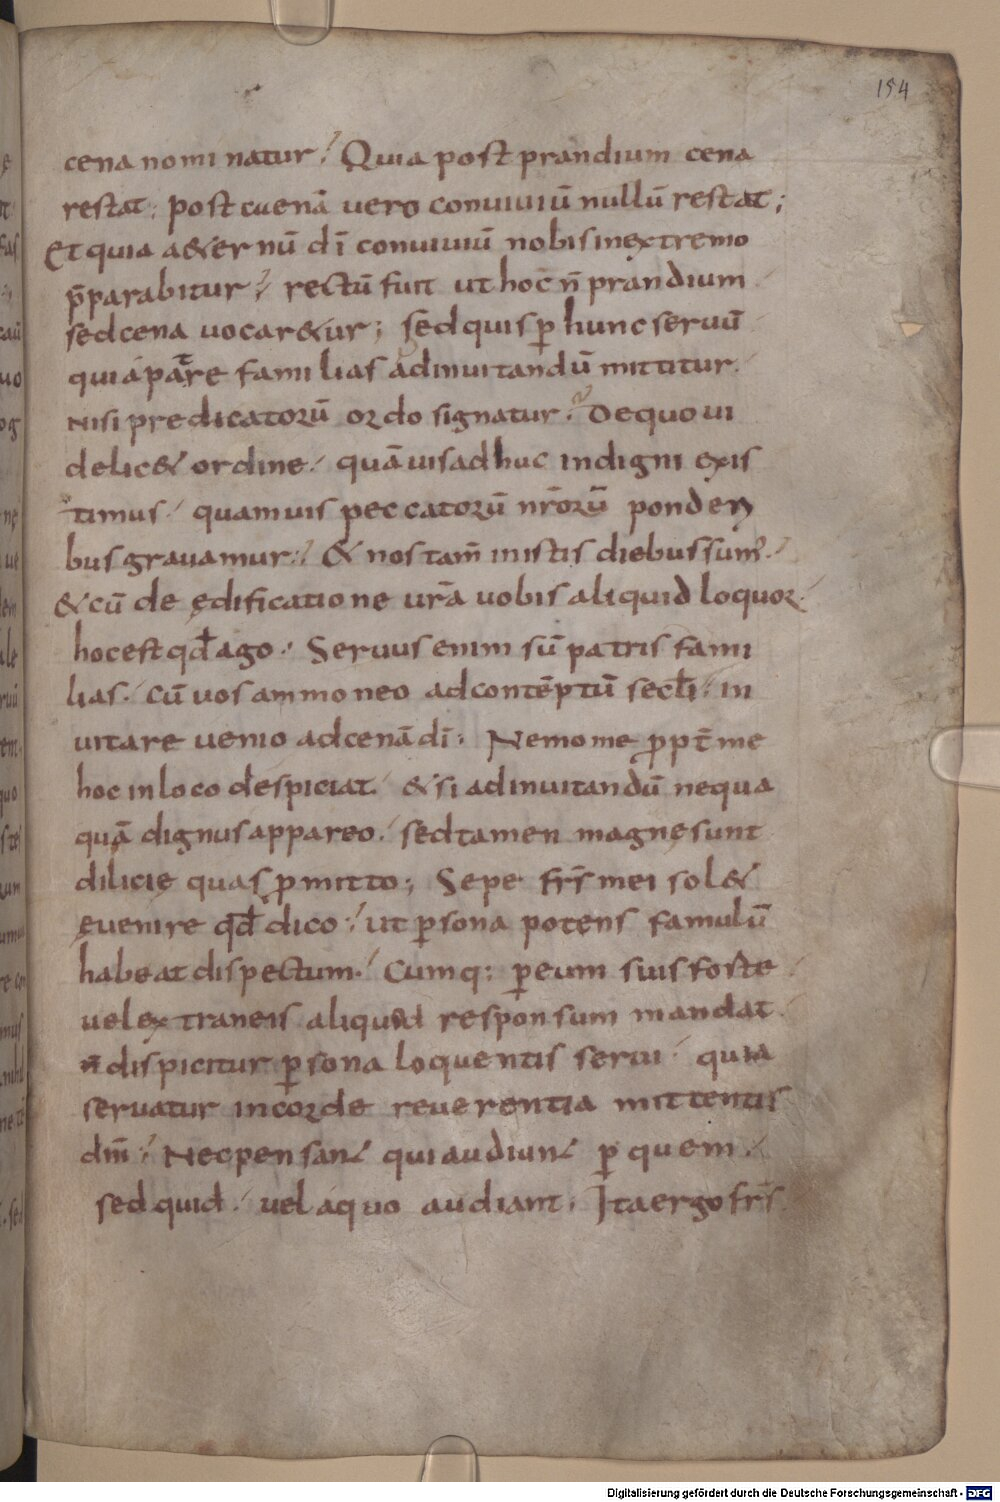 154
cena nominatur; Quia post prandium cena
restat; post cuenā uero conuiuiū nullū restat;
Et quia a&ernū dī conuiuiū nobis in extremo
p̄parabitur; rectū fuit ut hoc n̄ prandium
sed cena uocar&ur; sed quis ꝑ hunc seruū
qui a patre familias ad inuitandū mittitur.
Nisi predicatorū ordo signatur. De quo ui
delic& ordine. quāuis adhuc indigni exis
timus. quamuis peccatorū nr̄orū ponderi
bus grauamur; & nos tam̄ in istis diebus sum᾽.
& cū de ędificatione ur̄a uobis aliquid loquor.
hoc est qđ ago. Seruus enim sū patris fami
lias. cū uos ammoneo ad contēptū secłi. in
uitare uenio ad cenā dī; Nemo me ꝓpt̄ me
hoc in loco despiciat. & si ad inuitandū nequa
quā dignus appareo. sed tamen magnę sunt
dilicię quas ꝓmitto; Sepe fr̄s mei sol&
euenire qđ dico; ut ꝑsona potens famulū
habeat dispectum. Cumq; ꝑ eum suis forte
uel extraneis aliquod responsum mandat.
n̄ dispicitur ꝑsona loquentis serui. quia
seruatur in corde reuerentia mittentis
dn̄i; Nec pensant qui audiunt ꝑ quem.
sed quid. uel a quo audiant; Ita ergo fr̄s
Digitalisierung gefördert durch die Deutsche Forschungsgemeinschaft - DFG